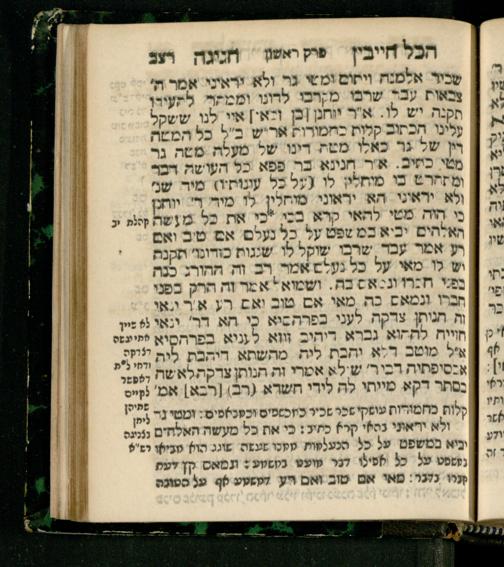 הכל חייבין פרק ראשון חגיגה רצב
שכיר אלמנה ויתום ומטי גר ולא יראוני אמר ה'
צבאות עבד שרבו מקרבו לדונו וממהר להעידו
תקנה יש לו. א"ר יוחנן [בן זכאי] אוי לנו ששקל
עלינו הכתוב קלות כחמורות אריש ב"ל כל המטה
דין של גר כאלו מטה דינו של מעלה מטה גר
מטי כתיב. א"ר חנינא בר פפא כל העושה דבר
ומתחרט בו מוחלין לו (על כל עונותיו) מיד שנ'
ולא יראוני הא יראוני מוחלין לו מיד ר' יוחנן
כי הוה מטי להאי קרא בכי כי את כל מעשה
קהלת יב
האלהים יביא במשפט על כל נעלם אם טוב ואם
רע אמר עבד שרבו שוקל לו שגגות כזדונו' תקנה
יש לו מאי על כל נעלם אמר רב זה ההורג כנה
בפני חברו ונמאס בה. ושמואל אמר זה הרק בפני
חברו ונמאס בה מאי אם טוב ואם רע א"ר ינאי
זה הנותן צדקה לעני בפרהסיא כי הא דר' ינאי
חזייה לההוא גברא דיהיב זוזא לעניא בפרהסיא
א"ל מוטב דלא יהבת ליה מהשתא דיהבת ליה
וכסיפתיה דבי ר' שילא אמרי זה הנותן צדקה לאשה
בסתר דקא מייתי לה לידי חשדא (רב) [רבא] אמ'
לא שייך
לצדקה
לקיים
שתיהן
ליתן
בצינעה
רש"א
קלות כחמורות עושקי שכר שכיר כמכשפים וכמנאפים: ומטי גר
ולא יראוני בהאי קרא כתיב: כי את כל מעשה האלהים
יביא במשפט על כל הנעלמות ממנו שעשה שוגג הוא מביאו
במשפט על כל אפילו דבר מועט במשמע: ונמאס קץ דעת
חברו בדבר: מאי אם טוב ואם רע דמשמע אף על הטובה